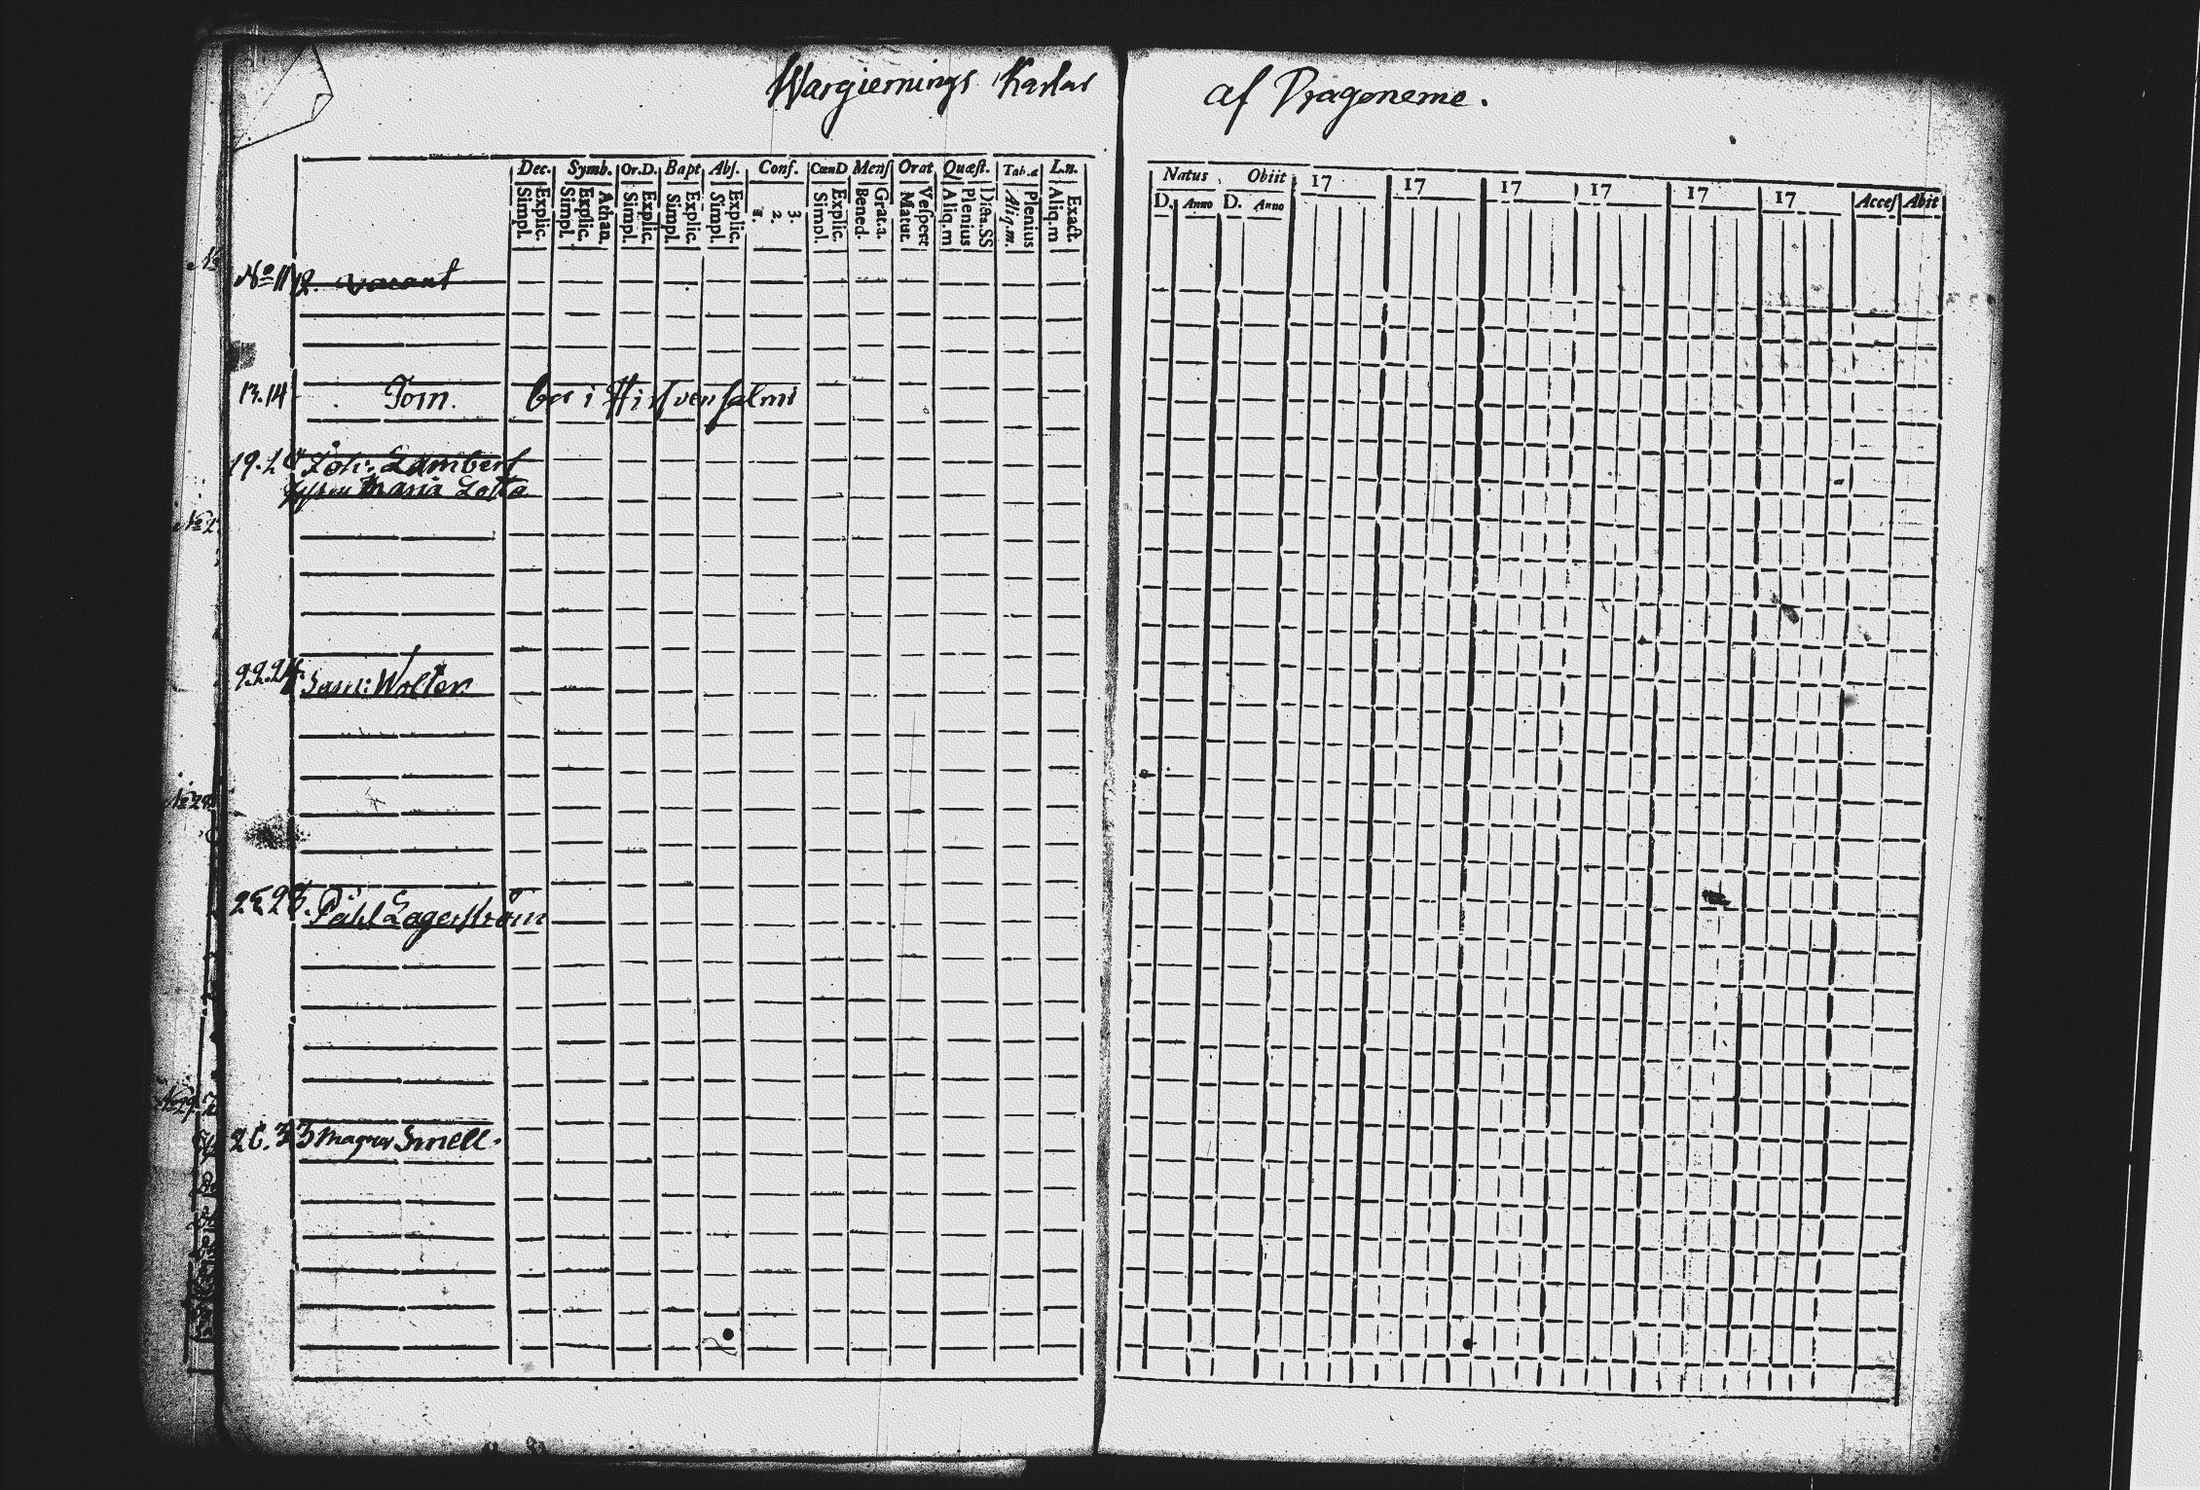 Wargiernings Karlar af Dragonerne.
Dec. Symb. Or.D. Bapt Abs. Conf. CœnD Mens Orat Quæst. Tab.æ L.n.
Explic. Simpl. Athan. Explic. Simpl. Explic. Simpl. Explic. Simpl. Explic. Simpl. 3. 2. 1. Explic. Simpl. Grat.a. Bened. Vespert Matut. Dicta.SS Plenius Aliq.m Plenius Aliq.m. Exact. Aliq.m
Natus Obiit 17 17 17 17 17 17 Acces Abit
D. Anno D. Anno
No 11 12. vacant
13.14 Torn. bor i Hirfvensalmi
Joh: Lambert
Maria Lotta
Sam: Wolter
Påhl Lagerström
Magnus Snell.